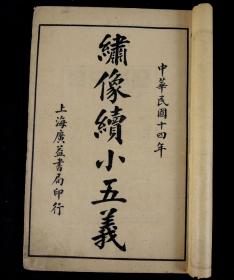 中華民國十四年
繡像續小五義
上海廣益書局印行